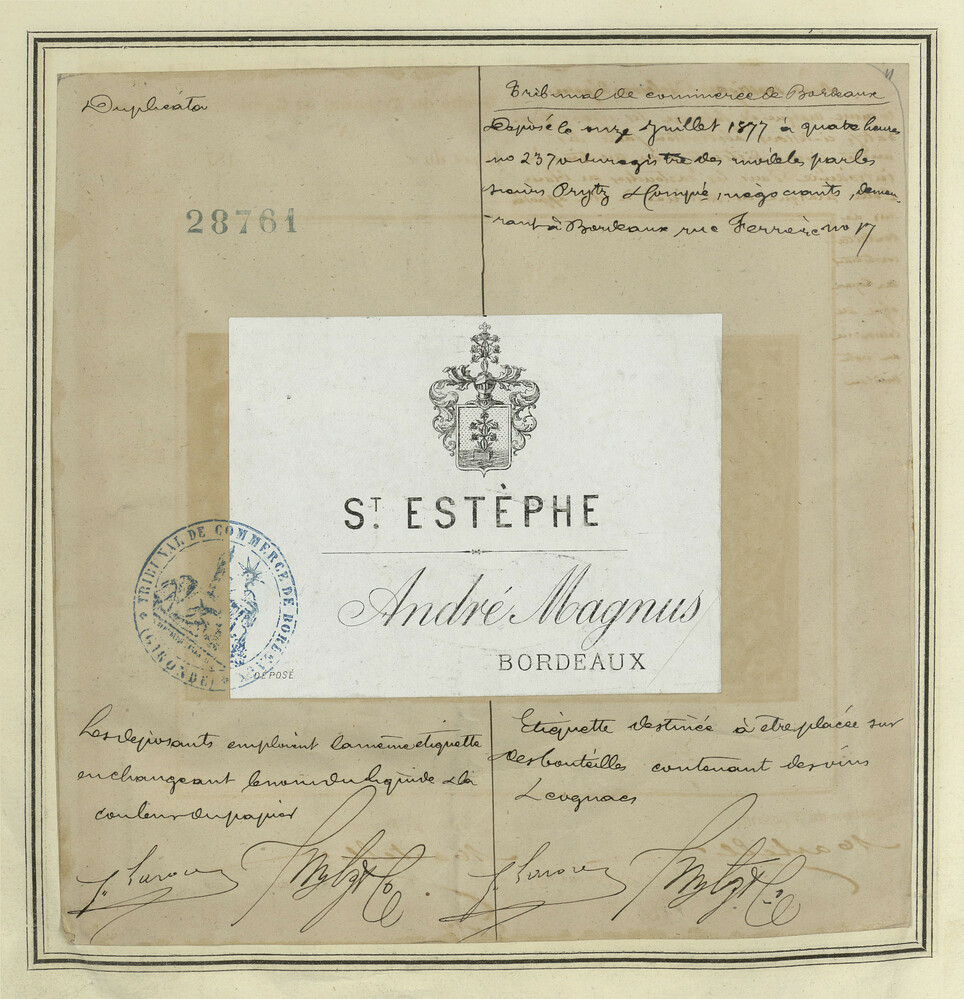 Duplicata
28761
Tribunal de commerce de Bordeaux
Déposé le onze Juillet 1877 à quatre heures
no 2370 du registre des modèles par les
sieurs Prytz & Compie, négociants, demeu-
rant à Bordeaux rue Ferrère no 17
ST. ESTÈPHE
André Magnus
BORDEAUX
DÉPOSÉ
TRIBUNAL DE COMMERCE DE BORDEAUX
(GIRONDE)
Les déposants emploient la même étiquette
en changeant le nom du liquide & la
couleur du papier
Etiquette destinée à être placée sur
des bouteilles contenant des vins
& cognacs